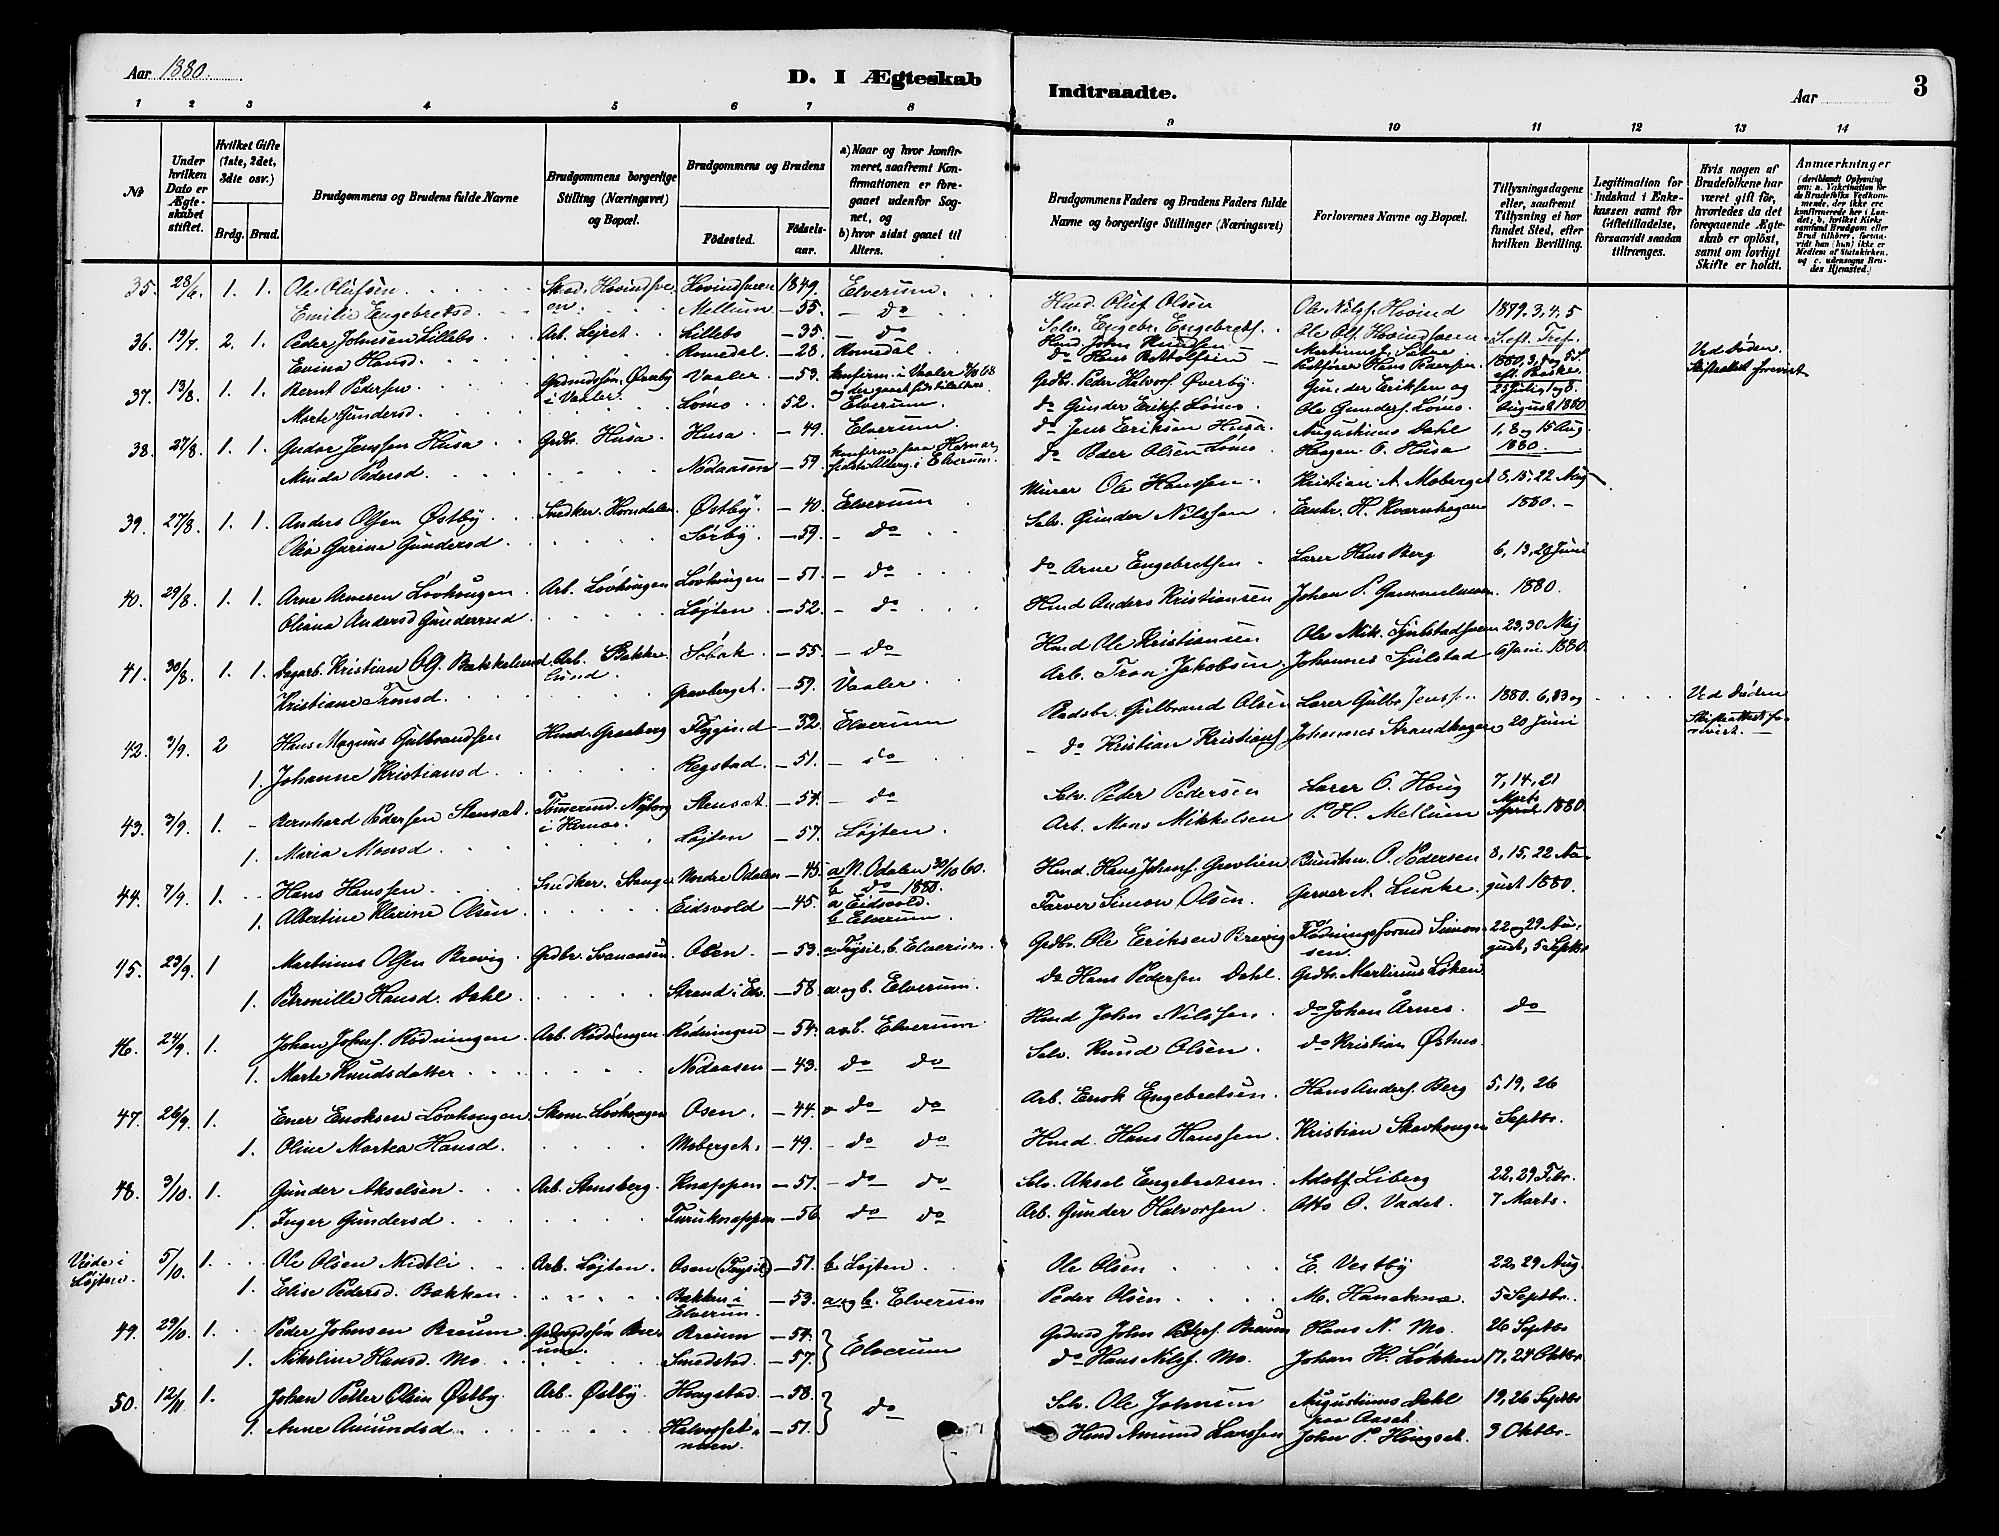 Aar 1880.
D. I Ægteskab
Indtraadte.
Aar
3
1 2 3 4 5 6 7 8 9 10 11 12 13 14
No
Under hvilken Dato er Ægteskabet stiftet.
Hvilket Gifte (1ste, 2det, 3die osv.)
Brdg. Brud.
Brudgommens og Brudens fulde Navne
Brudgommens borgerlige Stilling (Næringsvei) og Bopæl.
Brudgommens og Brudens
Fødested. Fødselsaar.
a) Naar og hvor konfirmeret, saafremt Konfirmationen er foregaaet udenfor Sognet, og
b) hvor sidst gaaet til Alters.
Brudgommens Faders og Brudens Faders fulde Navne og borgerlige Stillinger (Næringsvei)
Forlovernes Navne og Bopæl.
Tillysningsdagene eller, saafremt Tillysning ei har fundet Sted, efter hvilken Bevilling.
Legitimation for Indskud i Enkekassen samt for Giftetilladelse, forsaavidt saadan tiltrænges.
Hvis nogen af Brudefolkene har været gift før, hvorledes da det foregaaende Ægteskab er opløst, samt om lovligt Skifte er holdt.
Anmærkninger
35. 28/6 1. 1. Ole Olufsen Hovindsveen 1849. Elverum. Hmd. Oluf Olsen Ole Nilsf. Hovind 1879. 3, 4, 5
Emilie Engebretsd. Mellum – 55. – do Selv. Engebr. Engebretsf. Ole Olf. Hovindsveen
36. 19/7 2. 1. Peder Johnsen Lillebo Arb. Lejret. Lillebo – 35. – do Hmd. John Knudsen Ved Døden.
Evina Hansd. Romedal – 28. Romedal. do Hans
37. 13/8 1. 1. Bernt Pedersen Gaardmdsøn, Øverby i Vaaler. Vaaler – 53. Grdbr. Peder Halvorsf. Øverby. Gunder Eriksen og 25 Juli, 1 og 8.
Marte Gundersd. Lømo 52. Elverum. do Gunder Eriksf. Lømo. Ole Gundersf. Lømo. August 1880
38. 27/8 1. 1. Gudor Jenssen Husa Grdbr. Husa. Husa – 49. Elverum. do Jens Eriksen Husa Augustinus Dahl 1, 8 og 15 Aug.
Minda Pedersd. Nodaasen – 59. do Peder Olsen Lømo Haagen O. Husa 1880.
39. 27/8 1. 1. Anders Olsen Østby Snedker. Horndalen Østby – 40 Elverum Murer Ole Hanssen. Kristian A. Moberget 8, 15, 22 Aug.
Olea Garine Gundersd. Sørby. – 59. – do Selv. Gunder Nilssen H. Kvernhagen 1880.
40. 29/8 1. 1. Arne Arnesen Løvhaugen Arb. Løvhaugen Løvhaugen – 51. – do do Arne Engebretsen Lærer Hans Berg 6, 13, 20 Juni
Oleana Andersd Gunderrud Løjten – 52. – do Hmd Anders Kristiansen Johan P. 1880.
41. 30/8 1. 1. Dagarb. Kristian Ol. Bakkelund Arb. Bakkelund. Søbak – 55. – do Hmd Ole Kristiansen Ole Mik. 23, 30 Maj
Kristiane Tronsd. Gravberget. – 59. Vaaler. Arb. Tron Jakobsen. Johannes 6 Juni 1880
42. 3/9. 2 Hans Magnus Gulbrandsen Hmd. Graaberg Flygind – 32 Elverum Gulbrand Olsen Lærer Gulbr. Jenss. 1880. 6, 13 og 20 Juni Ved Døden
1. Johanne Kristiansd. Regstad. – 51. – do do Kristian Kristiansf. Johannes Strandhagen
43. 3/9. 1. Bernhard Pedersen Stenset. Tømmermd. Nyborg i Hernæs. Stenset – 54. – do Selv. Peder Pedersen Lærer O. Houg 7, 14, 21 Marts
1. Maria Monsd. Løjten – 57. Løjten. Arb. Mons Mikkelsen P. H. Mellum 1880.
44. 7/9. 1. Hans Hanssen Snedker. Stange Nordre Odalen – 45. a N. Odalen 30/10 60. b do 1880. Hmd. Hans Johansf. P. Pedersen 8, 15, 22 August 1880.
1. Albertine Klarine Olsen Eidsvold – 45. a Eidsvold. b Elverum Farver Simon Olsen. Garver A. Lunke.
45. 23/9. 1 Martinus Olsen Brevig Grdbr. Svenaasen. Osen. – 53. a Trysil, b. Elverum. Grdbr. Ole Eriksen Brevig Simonsen. 22 og 29 August, 5 Septbr
1. Pernille Hansd. Dahl Strand i Elv. – 58 a og b. Elverum. do Hans Pedersen Dahl. Grdbr. Martinus Løken
46. 24/9. 1. Johan Johnsf. Rødningen Arb. Rødningen. Rødningen – 54. a og b. Elverum Hmd John Nilssen do Johan Årnes. do
1. Marte Knudsdatter Nodaasen – 43. do do Selv. Knud Olsen. do Kristian
47. 26/9. 1. Ener Enoksen Løvhaugen Skom. Løvhaugen Osen. – 44. do do Arb. Enok Engebretsen Hans Andersf. Berg 5, 19, 26
1. Oline Martea Hansd. Moberget. – 49. do do Hmd. Hans Hanssen. Kristian Skavhaugen Septbr.
48. 3/10. 1. Gunder Akselsen Arb. Arnsberg. Knappen – 51. do do Selv. Aksel Engebretsen. Adolf Liberg 22, 29 Febr.
1. Inger Gundersd. Furuknappen – 56. do do Arb. Gunder Halvorsen. Otto O. Vadet. 7 Marts.
Viede i Løjten. 5/10. 1. Ole Olsen Nidtli Arb. Løjten. Osen (Trysil) – 51. b Løjten. Ole Olsen E. Vestby 22, 29 Aug.
1. Elise Pedersd. Bakken Bakken i Elverum. – 53. a og b. Elverum Peder Olsen M. 5 Septbr.
49. 29/10. 1. Peder Johnsen Breum Breum – 54. Elverum John Petersf. Breum Hans N. Mo 26 Septbr
1. Nikoline Hansd. Mo Smedstad. – 57. do Hans Nilsf. Mo. Johan H. Løkken 17, 24 Oktbr.
50. 12/11 1. Johan Petter Olsen Østby Arb. Østby. Haagstad. – 58. do Selv. Ole Johnsen Augustinus Dahl paa Aaset 19, 26 Septbr
1. Anne Amundsd. – 51. Hmd Amund Larssen John P. Hougset. 3 Oktbr.